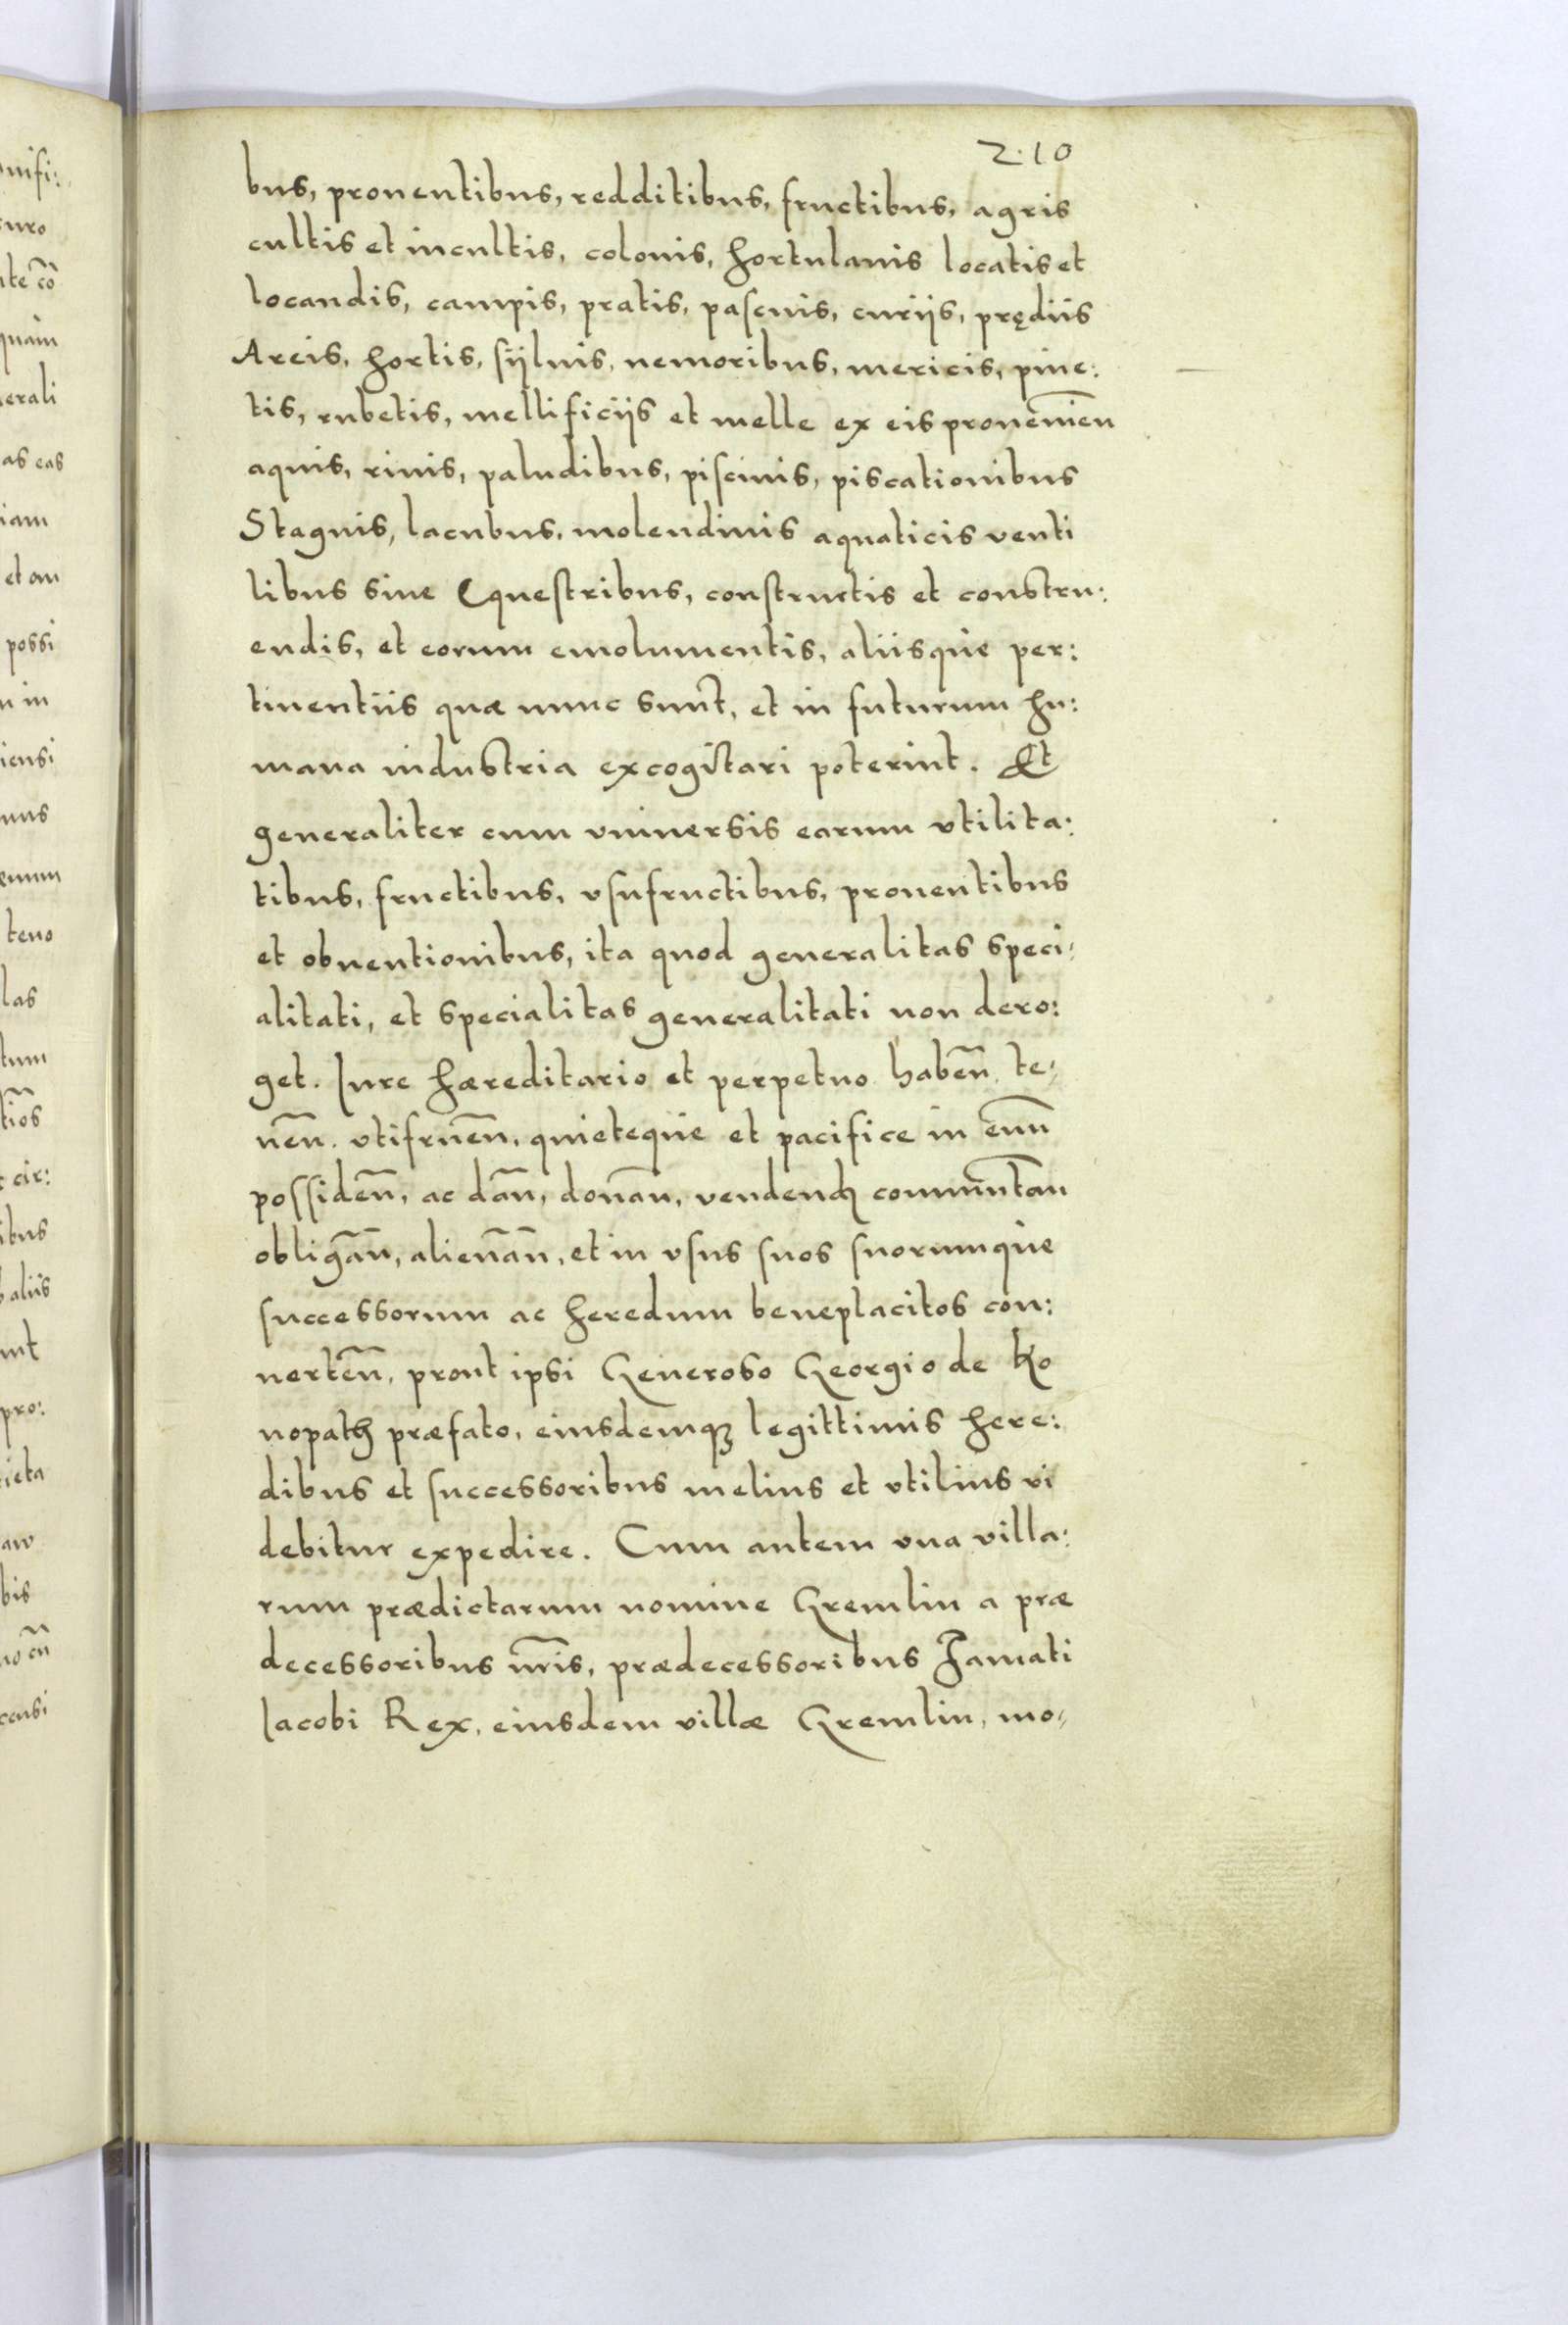 210
bus, prouentibus, redditibus, fructibus, agris
cultis et incultis, colonis, hortulanis locatis et
locandis, campis, pratis, pascuis, curijs, prędiis
Areis, hortis, sÿluis, nemoribus, mericis, pine:
tis, rubetis, mellificijs et melle ex eis prouenien̄
aquis, riuis, paludibus, piscinis, piscationibus
Stagnis, lacubus, molendinis aquaticis venti
libus siue Equestribus, constructis et constru:
endis, et eorum emolumentis, aliisque per:
tinentiis quæ nunc sunt, et in futurum hu:
mana industria excogitari poterint. Et
generaliter cum vniuersis earum vtilita:
tibus, fructibus, vsufructibus, prouentibus
et obuentionibus, ita quod generalitas speci,
alitati, et specialitas generalitati non dero:
get. Iure hæreditario et perpetuo habeñ, te,
neñ. vtifrueñ, quieteque et pacifice in euū
possideñ, ac dañ, donañ, vendend commutañ
obligañ, alienañ, et in vsus suos suorumque
successorum ac heredum beneplacitos con:
uerteñ, prout ipsi Generoso Georgio de Ko
nopath præfato, eiusdemqꝫ legittimis here:
dibus et successoribus melius et vtilius vi
debitur expedire. Cum autem vna villa:
rum prædictarum nomine Gremlin a præ
decessoribus nr̄is, prædecessoribus Famati
Iacobi Rex, eiusdem villæ Gremlin, mo,
nifi:
uro
te cō
quam
erali
as eas
iam
et om
possi
in
iensi
nus
teno
las
tum
cir:
ibus
aliis
pro:
ieta
bis
censi